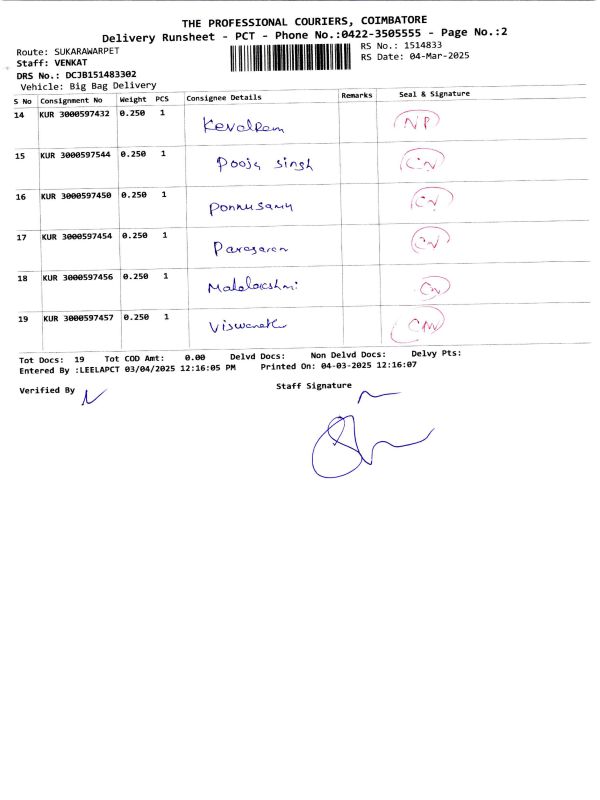 THE PROFESSIONAL COURIERS, COIMBATORE
Delivery Runsheet - PCT - Phone No.:0422-3505555 - Page No.:2
Route: SUKARAWARPET RS No.: 1514833
Staff: VENKAT RS Date: 04-Mar-2025
DRS No.: DCJB151483302
Vehicle: Big Bag Delivery
S No Consignment No Weight PCS Consignee Details Remarks Seal & Signature
14 KUR 3000597432 0.250 1 KevalRam NP
15 KUR 3000597544 0.250 1 Pooja Singh CN
16 KUR 3000597450 0.250 1 Ponnusamy CN
17 KUR 3000597454 0.250 1 Parasaran CN
18 KUR 3000597456 0.250 1 Mahalakshmi CN
19 KUR 3000597457 0.250 1
Tot Docs: 19 Tot COD Amt: 0.00 Delvd Docs: Non Delvd Docs: Delvy Pts:
Entered By :LEELAPCT 03/04/2025 12:16:05 PM Printed On: 04-03-2025 12:16:07
Verified By Staff Signature